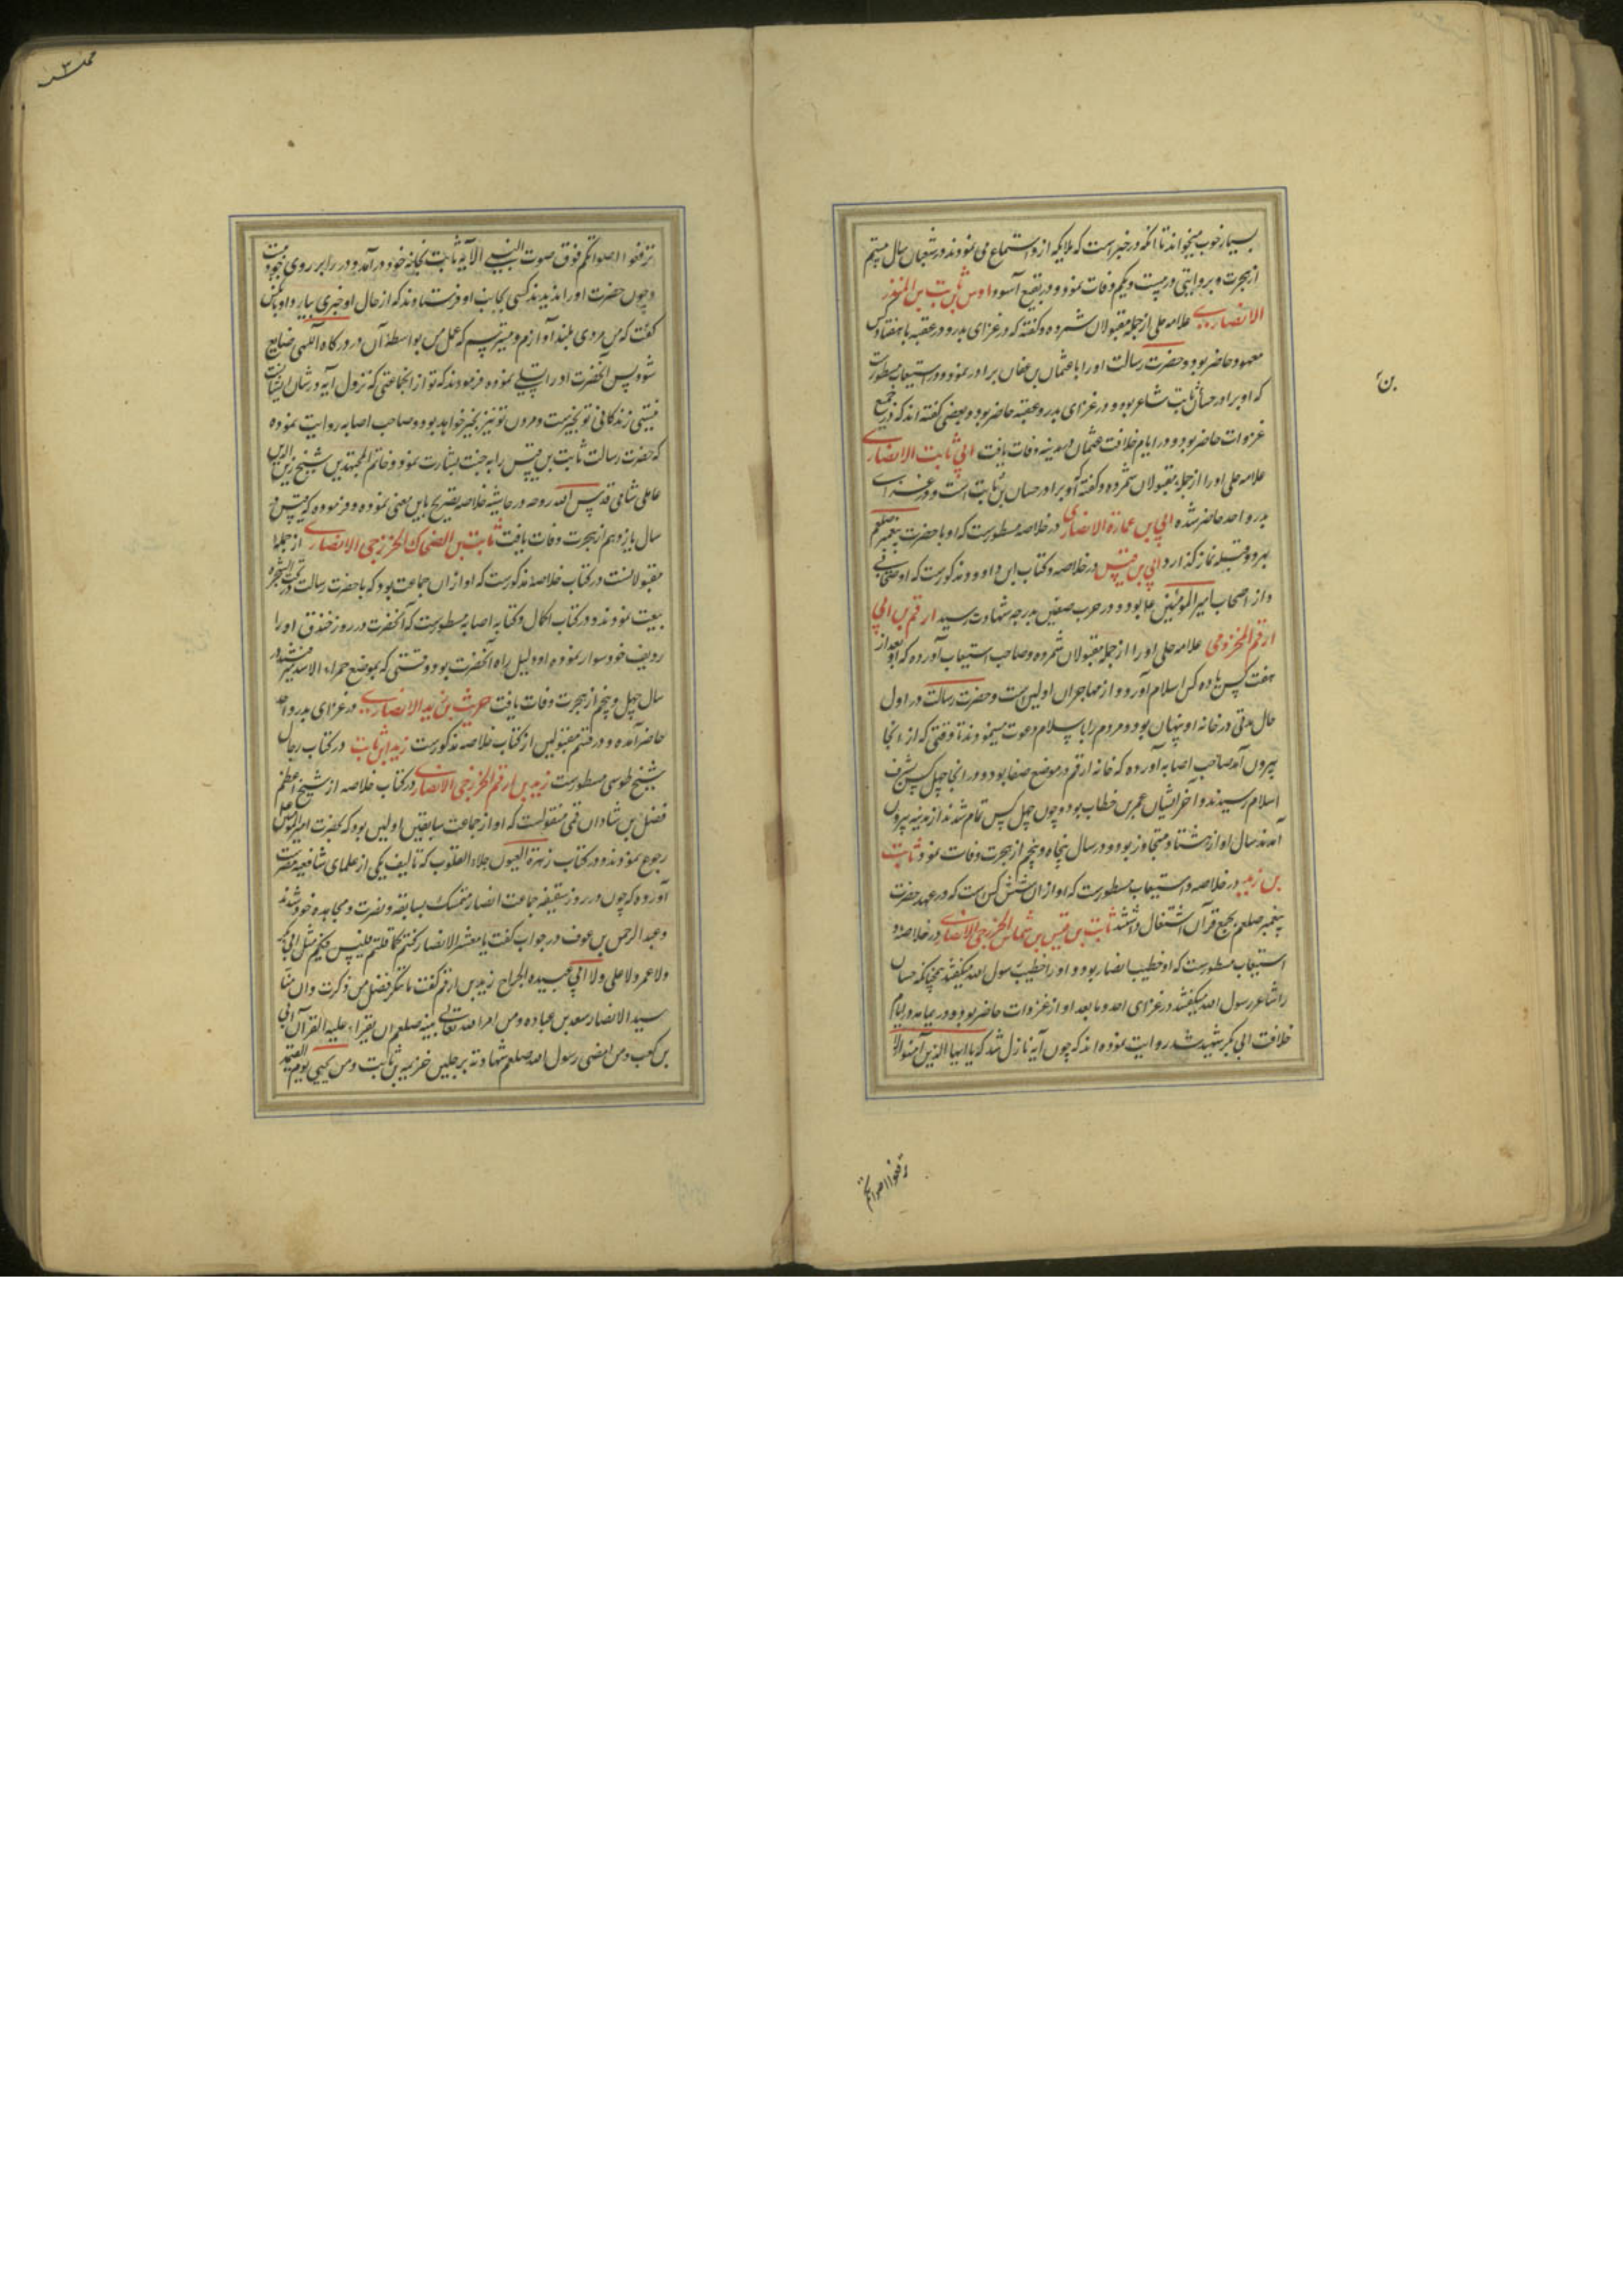 بسیار خوب میخواند تا انکه در خبر است که ملایکه از و استماع می نمودند در شعبان سال بیستم
از هجرت و بروایتی در بیست و یکم وفات نمود و در بقیع آسود اوس بن ثابت بن المنذر
الانصاری علامه حلی از جمله مقبولان شمرده و گفته که در غزای بدر و در عقبه با هفتاد کس
معهود حاضر بود و حضرت رسالت اورا با عثمان بن عفان برادر نمود و در استیعاب مسطورست
که او برادر حسان ثابت شاعر بود و در غزای بدر و عقبه حاضر بود و بعضی گفته اند که در جمیع
غزوات حاضر بود و در ایام خلافت عثمان در مدینه وفات یافت ابی ثابت الانصاری
علامه حلی اورا از جمله مقبولان شمرده و گفته که او برادر حسان بن ثابت است و در غزای
بدر و احد حاضر شده ابی بن عمارة الانصاری در خلاصه مسطورست که او با حضرت پیغمبر صلعم
بهر دو قبله نماز گذارد ابی بن قیس در خلاصه و کتاب ابن داود مذکورست که او صحابی
و از اصحاب امیر المومنین علی بود و در حرب صفین بدرجه شهادت رسید ارقم بن ابی
ارقم المخزومی علامه حلی اورا از جمله مقبولان شمرده و صاحب استیعاب آورده که او بعد از
هفت کس یا ده کس اسلام آورد و از مهاجران اولین است و حضرت رسالت در اول
حال مدتی در خانه او پنهان بود و مردم را باسلام دعوت مینمودند تا وقتی که از انجا
بیرون آمد صاحب اصابه آورده که خانه ارقم در موضع صفا بود و در انجا چهل کس بشرف
اسلام رسیدند و اخر ایشان عمر بن خطاب بود و چون چهل کس تمام شدند از مدینه بیرون
آمدند سال او از هشتاد متجاوز بود و در سال پنجاه و پنجم از هجرت وفات نمود ثابت
بن زید در خلاصه و استیعاب مسطورست که او از ان شش کس است که در عهد حضرت
پیغمبر صلعم بجمع قرآن اشتغال داشتند ثابت بن قیس بن شماس الخزرجی الانصاری در خلاصه و
استیعاب مسطورست که او خطیب انصار بود و اورا خطیب رسول الله میگفتند همچنانکه حسان
را شاعر رسول الله میگفتند در غزای احد و ما بعد او از غزوات حاضر بود و در یمامه در ایام
خلافت ابی بکر شهید شد روایت نموده اند که چون آیه نازل شد که یا ایها الذین آمنوا لا
بن
رفعوا اصواتکم
ترفعوا اصواتکم فوق صوت النبی الآیة ثابت بخانه خود در آمد و در را بر روی خود بست
و چون حضرت اورا ندیدند کسی بجانب او فرستادند که از حال او خبری بیارد او بآنکس
گفت که من مردی بلند آوازم و میترسم که عمل من بواسطه آن در درگاه آلهی ضایع
شود پس آنحضرت اورا تسلی نموده فرمودند که تو از انجماعتی که نزول آیه در شان ایشانست
نیستی زندگانی تو بخیرست و مردن تو نیز بخیر خواهد بود و صاحب اصابه روایت نموده
که حضرت رسالت ثابت بن قیس را به جنت بشارت نمود و خاتم المجتهدین شیخ زین الدین
عاملی شامی قدس الله روحه در حاشیه خلاصه تصریح باین معنی نموده و فرموده که قیس در
سال یازدهم از هجرت وفات یافت ثابت بن الضحاک الخزرجی الانصاری از جمله
مقبولانست در کتاب خلاصه مذکورست که او از ان جماعت بود که با حضرت رسالت در تحت الشجره
بیعت نمودند و در کتاب اکمال و کتابه اصابه مسطورست که آنحضرت در روز خندق اورا
ردیف خود سوار نموده او دلیل راه آنحضرت بود وقتی که بموضع حمراء الاسد میرفتند در
سال چهل و پنجم از هجرت وفات یافت حریث بن زید الانصاری در غزای بدر و احد
حاضر آمده و در قسم مقبولین از کتاب خلاصه مذکورست زید بن ثابت در کتاب رجال
شیخ طوسی مسطورست زید بن ارقم الخزرجی الانصاری در کتاب خلاصه از شیخ اعظم
فضل بن شادان قمی منقولست که او از جماعت سابقین اولین بود که بحضرت امیر المومنین
رجوع نمودند و در کتاب نزهة العیون جلاء القلوب که تالیف یکی از علمای شافعیه مصرست
آورده که چون در روز سقیفه جماعت انصار تمسک بسابقه و نصرت و مجاهده خود شدند
و عبد الرحمن بن عوف در جواب گفت یا معشر الانصار کنتم کما قلتم فلیس فیکم مثل ابی بکر
ولا عمر ولا علی ولا ابی عبیده الجراح زید بن ارقم گفت ما ننکر فضل من ذکرت وان منا
سید الانصار سعد بن عباده ومن امر الله تعالی نبیه صلعم ان یقراء علیه القرآن ابی
بن کعب ومن امضی رسول الله صلعم شهادته برجلین خزیمه بن ثابت ومن یجیی یوم القیمه